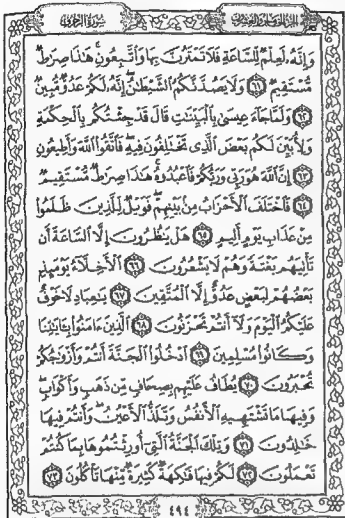 سُورَةُ الزُّخْرُفِ
وَإِنَّهُۥ لَعِلْمٌ لِّلسَّاعَةِ فَلَا تَمْتَرُنَّ بِهَا وَٱتَّبِعُونِ هَٰذَا صِرَٰطٌ
مُّسْتَقِيمٌ ۝٦١ وَلَا يَصُدَّنَّكُمُ ٱلشَّيْطَٰنُ إِنَّهُۥ لَكُمْ عَدُوٌّ مُّبِينٌ
۝٦٢ وَلَمَّا جَآءَ عِيسَىٰ بِٱلْبَيِّنَٰتِ قَالَ قَدْ جِئْتُكُم بِٱلْحِكْمَةِ
وَلِأُبَيِّنَ لَكُم بَعْضَ ٱلَّذِى تَخْتَلِفُونَ فِيهِ فَٱتَّقُوا۟ ٱللَّهَ وَأَطِيعُونِ
۝٦٣ إِنَّ ٱللَّهَ هُوَ رَبِّى وَرَبُّكُمْ فَٱعْبُدُوهُ هَٰذَا صِرَٰطٌ مُّسْتَقِيمٌ
۝٦٤ فَٱخْتَلَفَ ٱلْأَحْزَابُ مِنۢ بَيْنِهِمْ فَوَيْلٌ لِّلَّذِينَ ظَلَمُوا۟
مِنْ عَذَابِ يَوْمٍ أَلِيمٍ ۝٦٥ هَلْ يَنظُرُونَ إِلَّا ٱلسَّاعَةَ أَن
تَأْتِيَهُم بَغْتَةً وَهُمْ لَا يَشْعُرُونَ ۝٦٦ ٱلْأَخِلَّآءُ يَوْمَئِذٍۭ
بَعْضُهُمْ لِبَعْضٍ عَدُوٌّ إِلَّا ٱلْمُتَّقِينَ ۝٦٧ يَٰعِبَادِ لَا خَوْفٌ
عَلَيْكُمُ ٱلْيَوْمَ وَلَآ أَنتُمْ تَحْزَنُونَ ۝٦٨ ٱلَّذِينَ ءَامَنُوا۟ بِـَٔايَٰتِنَا
وَكَانُوا۟ مُسْلِمِينَ ۝٦٩ ٱدْخُلُوا۟ ٱلْجَنَّةَ أَنتُمْ وَأَزْوَٰجُكُمْ
تُحْبَرُونَ ۝٧٠ يُطَافُ عَلَيْهِم بِصِحَافٍ مِّن ذَهَبٍ وَأَكْوَابٍ
وَفِيهَا مَا تَشْتَهِيهِ ٱلْأَنفُسُ وَتَلَذُّ ٱلْأَعْيُنُ وَأَنتُمْ فِيهَا
خَٰلِدُونَ ۝٧١ وَتِلْكَ ٱلْجَنَّةُ ٱلَّتِىٓ أُورِثْتُمُوهَا بِمَا كُنتُمْ
تَعْمَلُونَ ۝٧٢ لَكُمْ فِيهَا فَٰكِهَةٌ كَثِيرَةٌ مِّنْهَا تَأْكُلُونَ ۝٧٣
٤٩٤